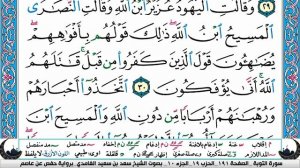 وَقَالَتِ ٱلۡيَهُودُ عُزَيۡرٌ ٱبۡنُ ٱللَّهِ وَقَالَتِ ٱلنَّصَٰرَى
ٱلۡمَسِيحُ ٱبۡنُ ٱللَّهِۖ ذَٰلِكَ قَوۡلُهُم بِأَفۡوَٰهِهِمۡۖ
يُضَٰهِـُٔونَ قَوۡلَ ٱلَّذِينَ كَفَرُواْ مِن قَبۡلُۚ قَٰتَلَهُمُ
ٱللَّهُۖ أَنَّىٰ يُؤۡفَكُونَ ٣٠ ٱتَّخَذُوٓاْ أَحۡبَارَهُمۡ
وَرُهۡبَٰنَهُمۡ أَرۡبَابٗا مِّن دُونِ ٱللَّهِ وَٱلۡمَسِيحَ ٱبۡنَ
سورة التوبة الصفحة ١٩١ الحزب ١٩ الجزء ١٠ بصوت الشيخ سعد بن سعيد الغامدي برواية حفص عن عاصم